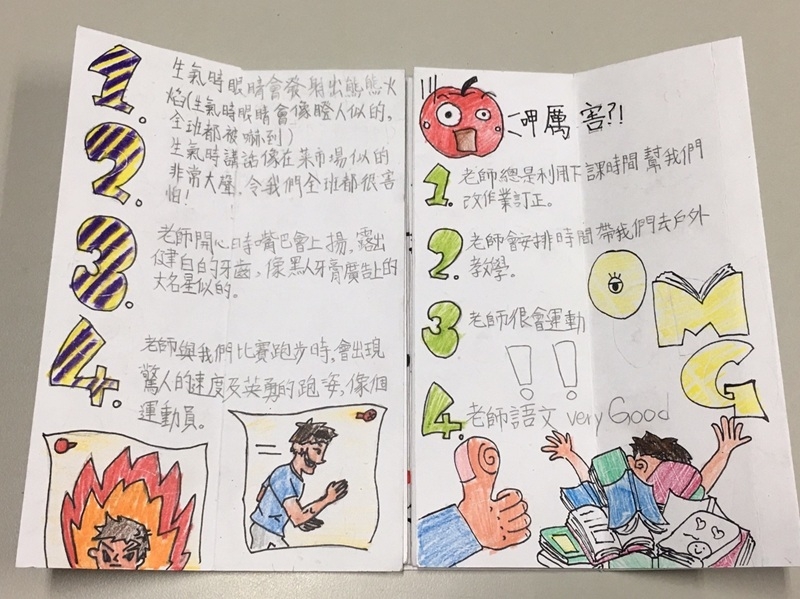 1.
生氣時眼睛會發射出熊熊火
焰(生氣時眼睛會像瞪人似的,
全班都被嚇到)
2.
生氣時講話像在菜市場似的
非常大聲,令我們全班都很害
怕!
3.
老師開心時嘴巴會上揚,露出
健白的牙齒,像黑人牙膏廣告上的
大名星似的。
4.
老師與我們比賽跑步時,會出現
驚人的速度及英勇的跑姿,像個
運動員。
呷厲害?!
1.
老師總是利用下課時間幫我們
改作業訂正。
2.
老師會安排時間帶我們去戶外
教學。
3
老師很會運動
!!
OMG
4.
老師語文 very Good